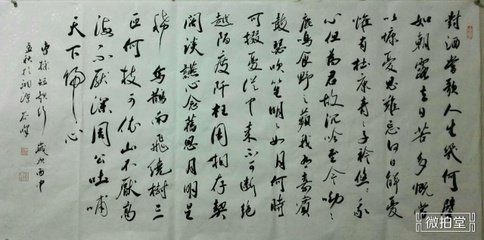 對酒當歌人生幾何譬
如朝露去日苦多慨當
以慷憂思難忘何以解憂
惟有杜康青青子衿悠悠我
心但為君故沉吟至今呦呦
鹿鳴食野之蘋我有嘉賓
鼓瑟吹笙明明如月何時
可掇憂從中來不可斷絕
越陌度阡枉用相存契
闊談讌心念舊恩月明星
稀烏鵲南飛繞樹三
匝何枝可依山不厭高
海不厭深周公吐哺
天下歸心
曹操短歌行 歲次丙申
微拍堂